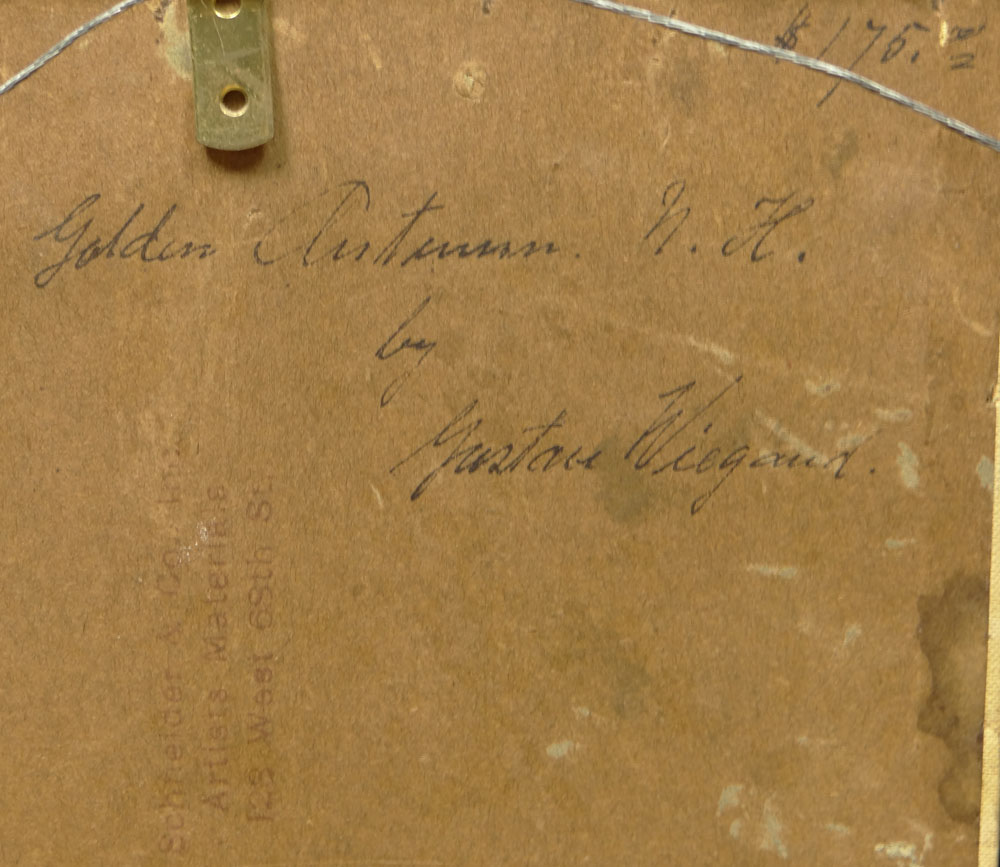 $175.00
Golden Autumn. N. H.
by
Gustave Wiegand.
& Co. Inc.
Artists Materials
West 68th St.